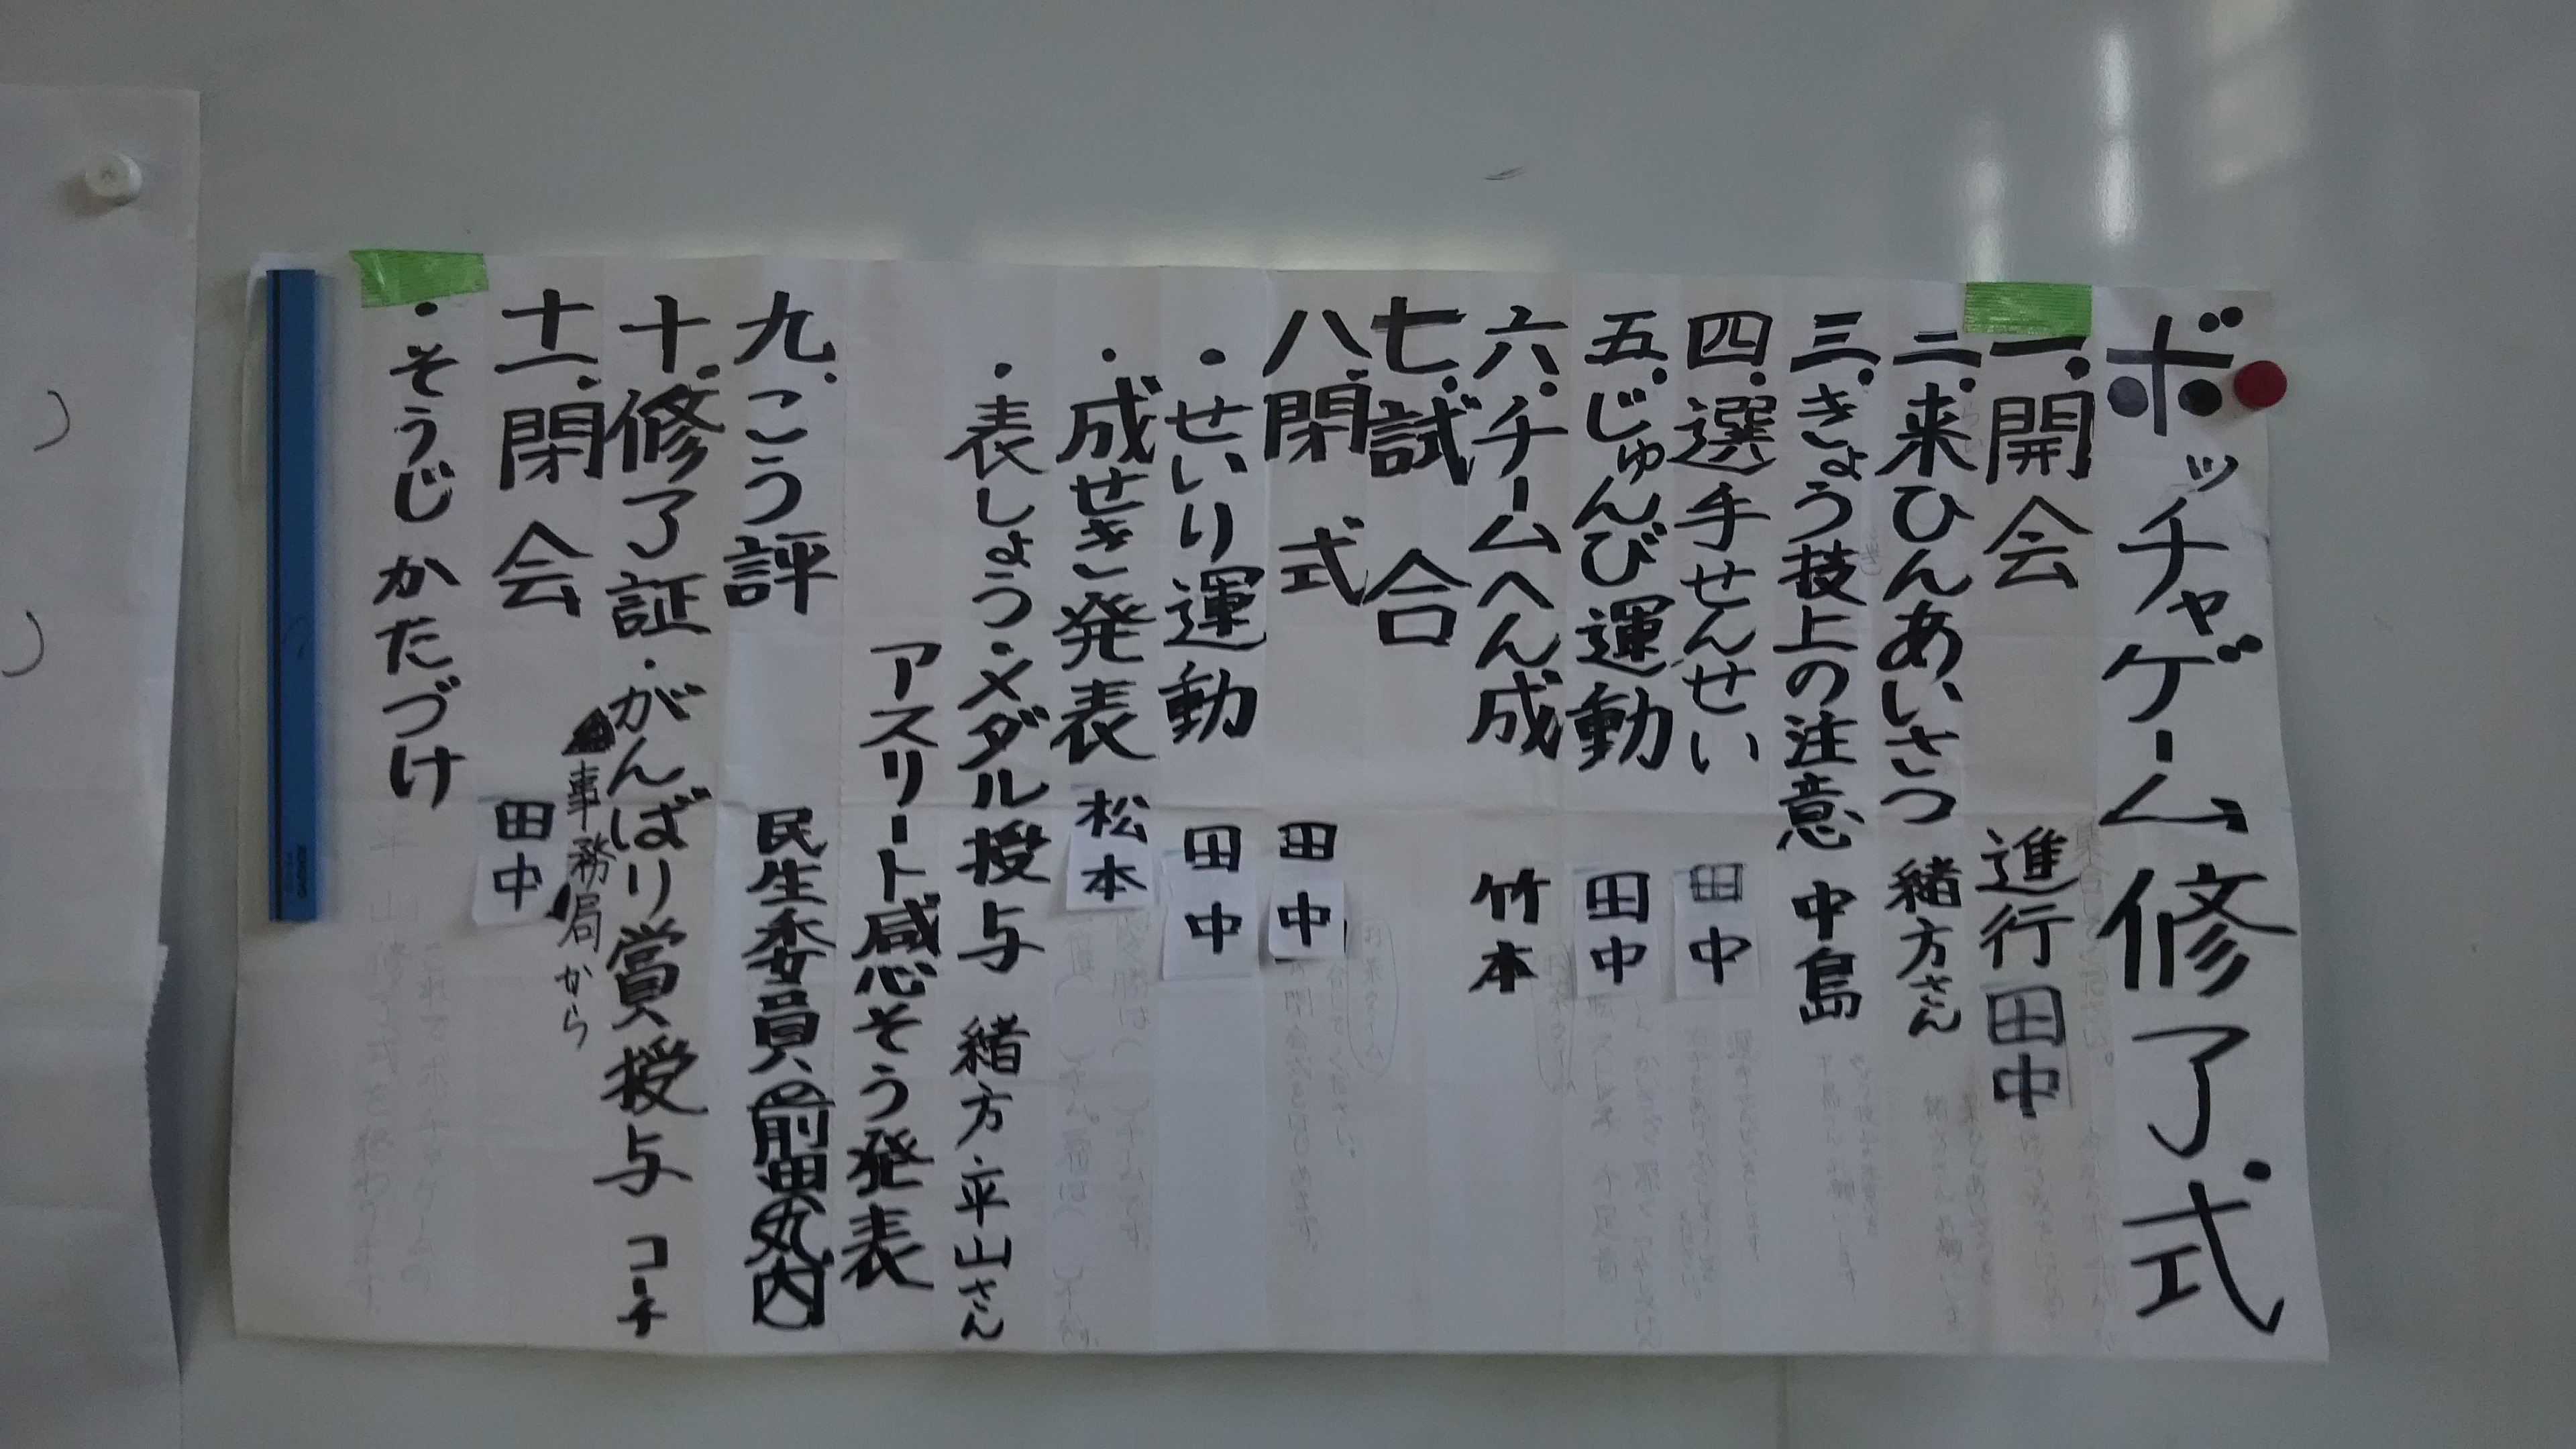 ボッチャゲーム修了式
一.開会 進行 田中
二.来ひんあいさつ 緒方さん
三.きょう技上の注意 中島
四.選手せんせい 田中
五.じゅんび運動 田中
六.チームへん成 竹本
七.試合
八.閉式 田中
・せいり運動 田中
・成せき発表 松本
・表しょう・メダル授与 緒方・平山さん
アスリート感そう発表
九.こう評 民生委員、前田 丸内
十.修了証・がんばり賞授与 コーチ
事務局から
十一.閉会 田中
・そうじ かたづけ